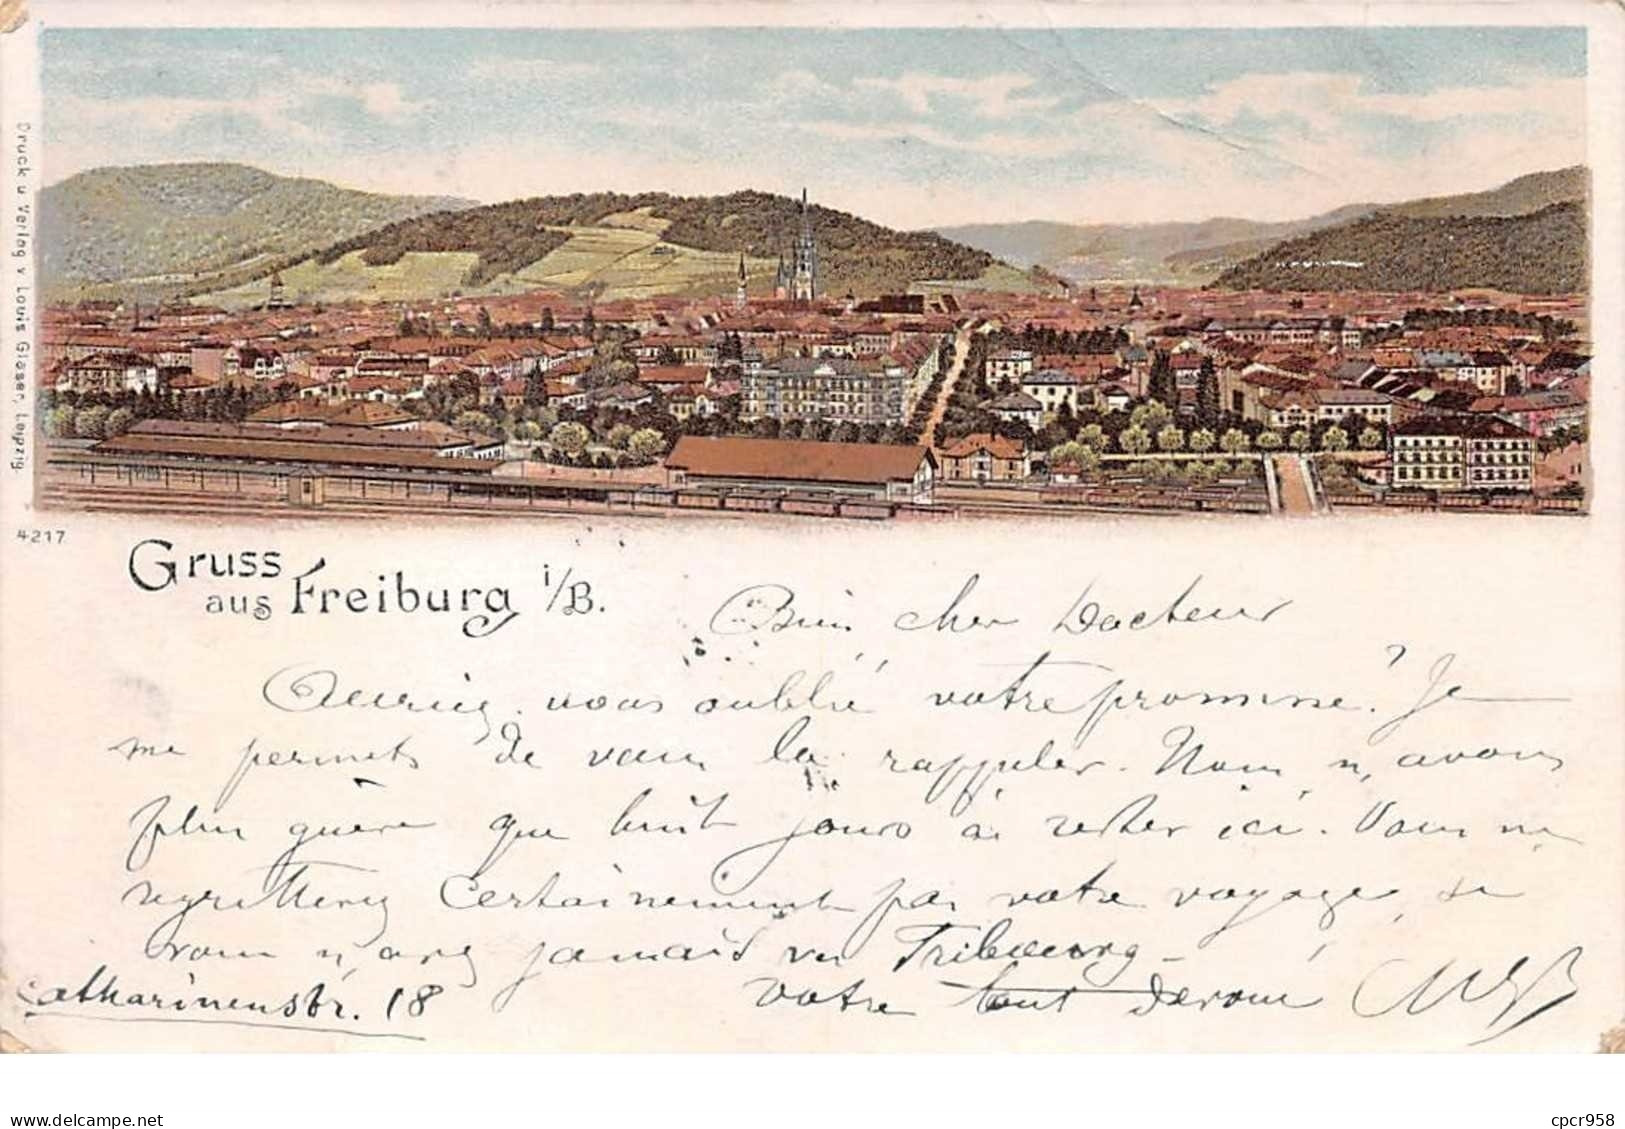 Druck u Verlag v Louis Glaser, Leipzig.
4217
Gruss
aus Freiburg i/B.
Bien cher Docteur
vous oublié votre promesse? Je
me permets de vous la rappeler. Nous n'avons
plus guère que huit jours à rester ici. Vous ne
regretterez certainement pas votre voyage, si
vous n'avez jamais vu Fribourg -
votre tout dévoué
Catharinenstr. 18
delcampe.net
cpcr958